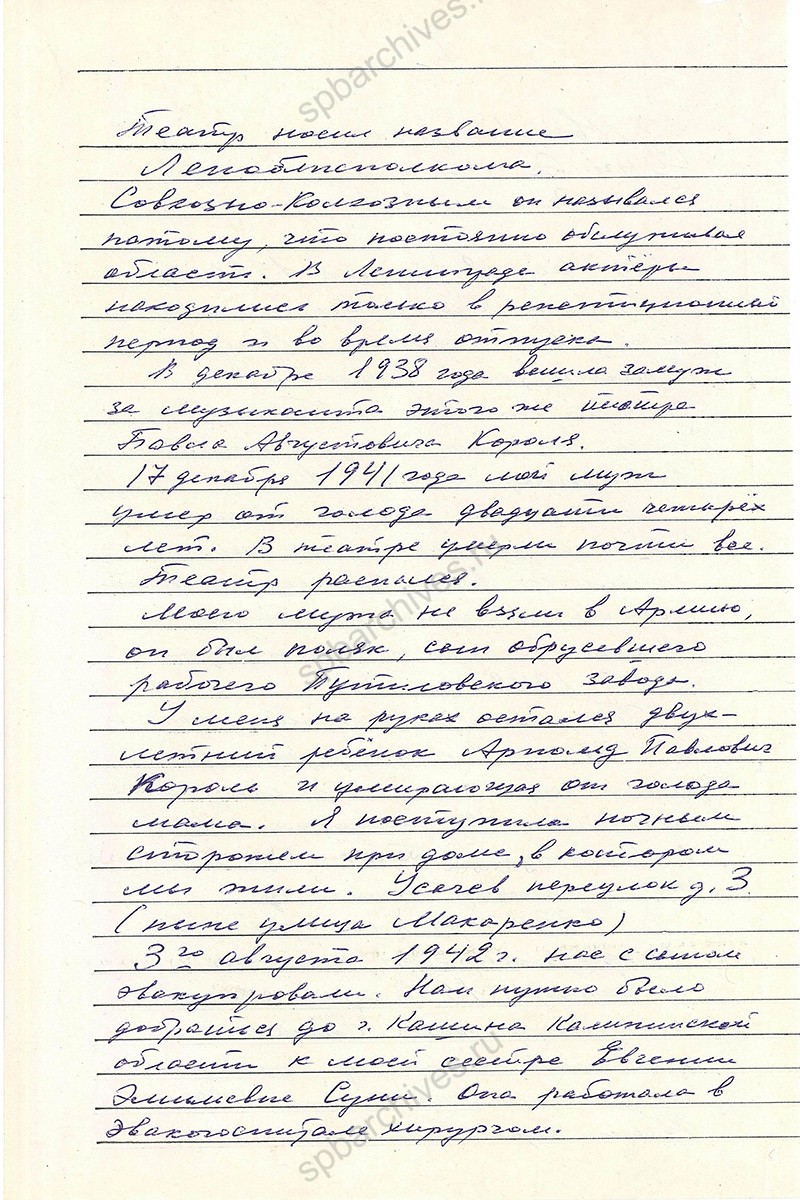 Театр носил название
Леноблисполкома.
Совхозно-Колхозным он назывался
потому, что постоянно обслуживал
области. В Ленинграде актёры
находились только в репетиционный
период и во время отпуска.
В декабре 1938 года вышла замуж
за музыканта этого же театра
Павла Августовича Короля.
17 декабря 1941 года мой муж
умер от голода двадцати четырёх
лет. В театре умерли почти все.
Театр распался.
Моего мужа не взяли в Армию,
он был поляк, сын обрусевшего
рабочего Путиловского завода.
У меня на руках остался двух-
летний ребёнок Арнольд Павлович
Король и умирающая от голода
мама. Я поступила ночным
сторожем при доме, в котором
мы жили. Усачев переулок д. 3
(ныне улица Макаренко)
3го августа 1942 г. нас с сыном
эвакуировали. Нам нужно было
добраться до г. Кашина Калининской
области к моей сестре Евгении
Эмильевне Суни. Она работала в
Эвакогоспитале хирургом.
spbarchives.ru
spbarchives.ru
spbarchives.ru